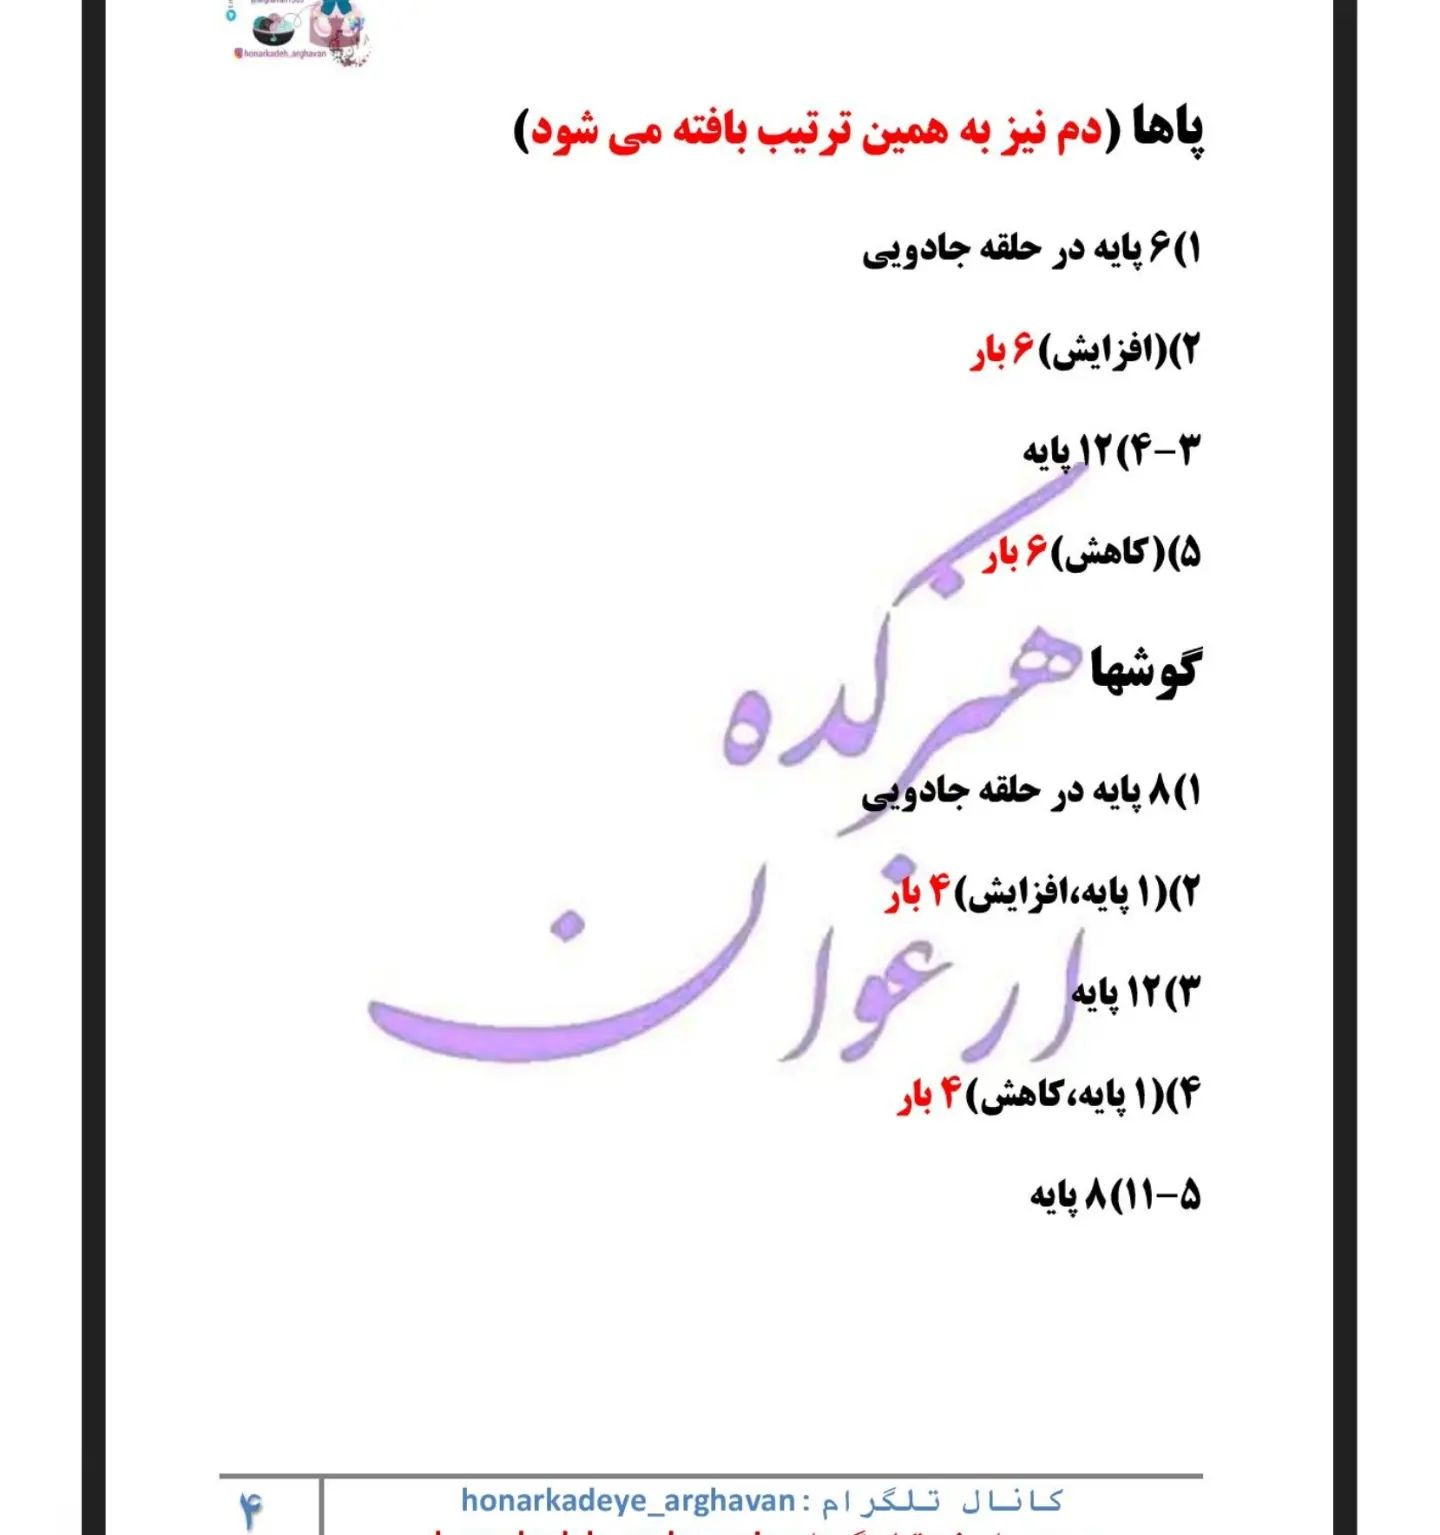 honarkadeh_arghavan
پاها (دم نیز به همین ترتیب بافته می شود)
۱)۶ پایه در حلقه جادویی
۲)(افزایش)۶ بار
۳-۴)۱۲ پایه
۵)(کاهش)۶ بار
گوشها
۱)۸ پایه در حلقه جادویی
۲)(۱ پایه،افزایش)۴ بار
۳)۱۲ پایه
۴)(۱ پایه،کاهش)۴ بار
۵-۱۱)۸ پایه
هنرکده
ارغوان
کانال تلگرام : honarkadeye_arghavan
۴